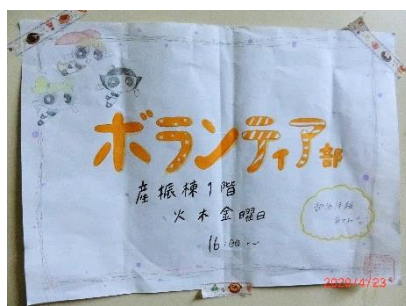 ボランティア部
産振棟1階
火木金曜日
16:00〜
2020/4/23